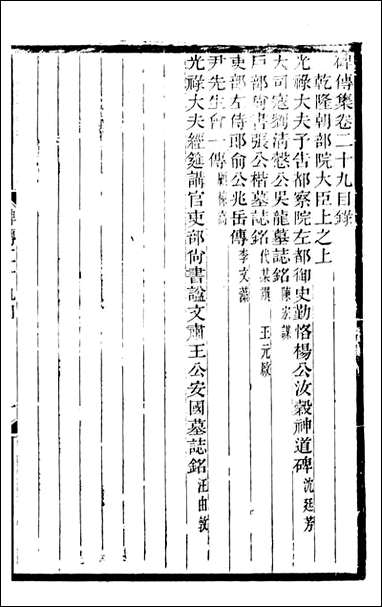 碑傳集卷二十九目錄
乾隆朝部院大臣上之上
光祿大夫予告都察院左都御史勤恪楊公汝穀神道碑 沈廷芳
大司寇劉清慤公吳龍墓誌銘 陳宏謀
戶部尚書張公楷墓誌銘 代某撰 王元啟
吏部左侍郎俞公兆岳傳 李文藻
尹先生會一傳 顧棟高
光祿大夫經筵講官吏部尚書諡文肅王公安國墓誌銘 汪由敦